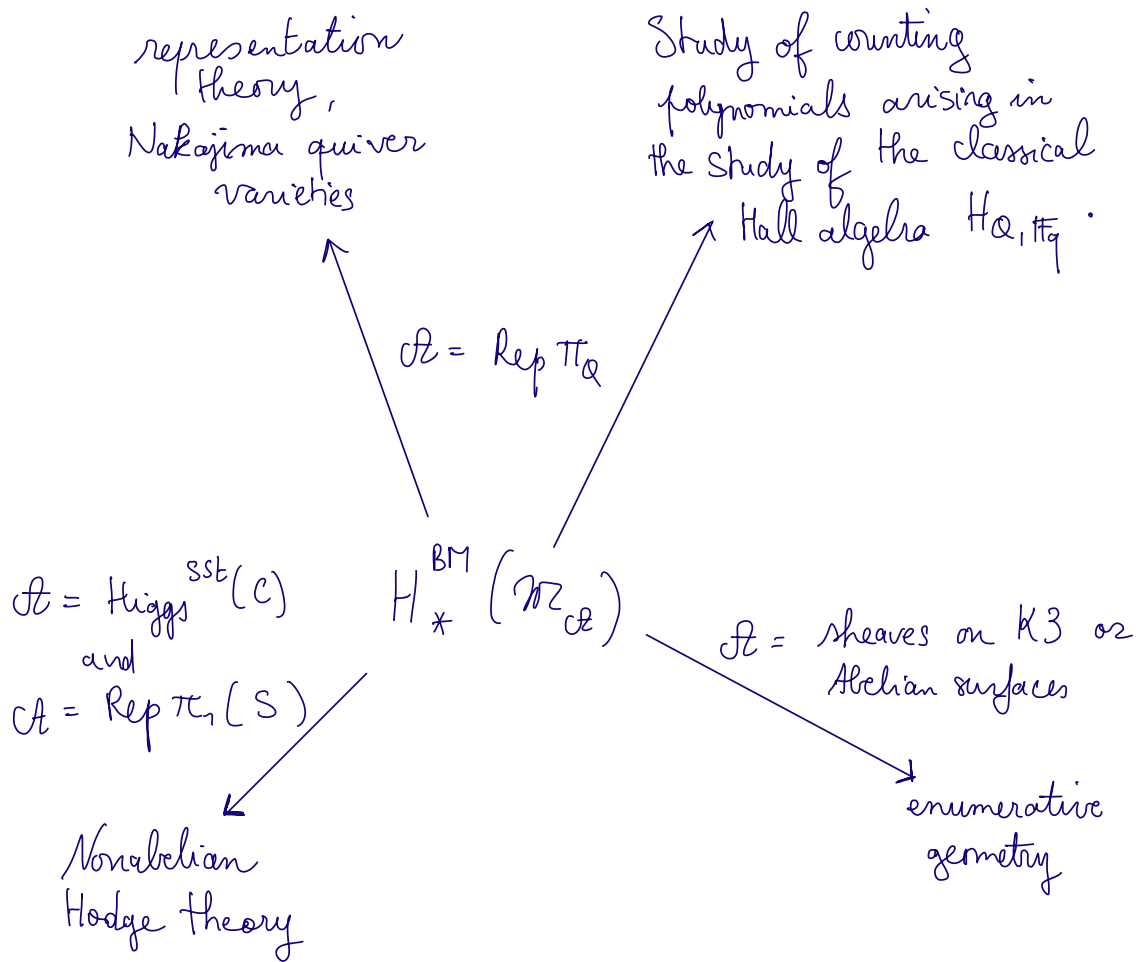 representation
theory,
Nakajima quiver
varieties
Study of counting
polynomials arising in
the study of the classical
Hall algebra H_{Q, 𝔽_q}.
𝒜 = Rep Π_Q
𝒜 = Higgs^{sst}(C)
and
𝒜 = Rep π₁(S)
H_*^{BM}(𝔐_𝒜)
𝒜 = sheaves on K3 or
Abelian surfaces
enumerative
geometry
Nonabelian
Hodge theory